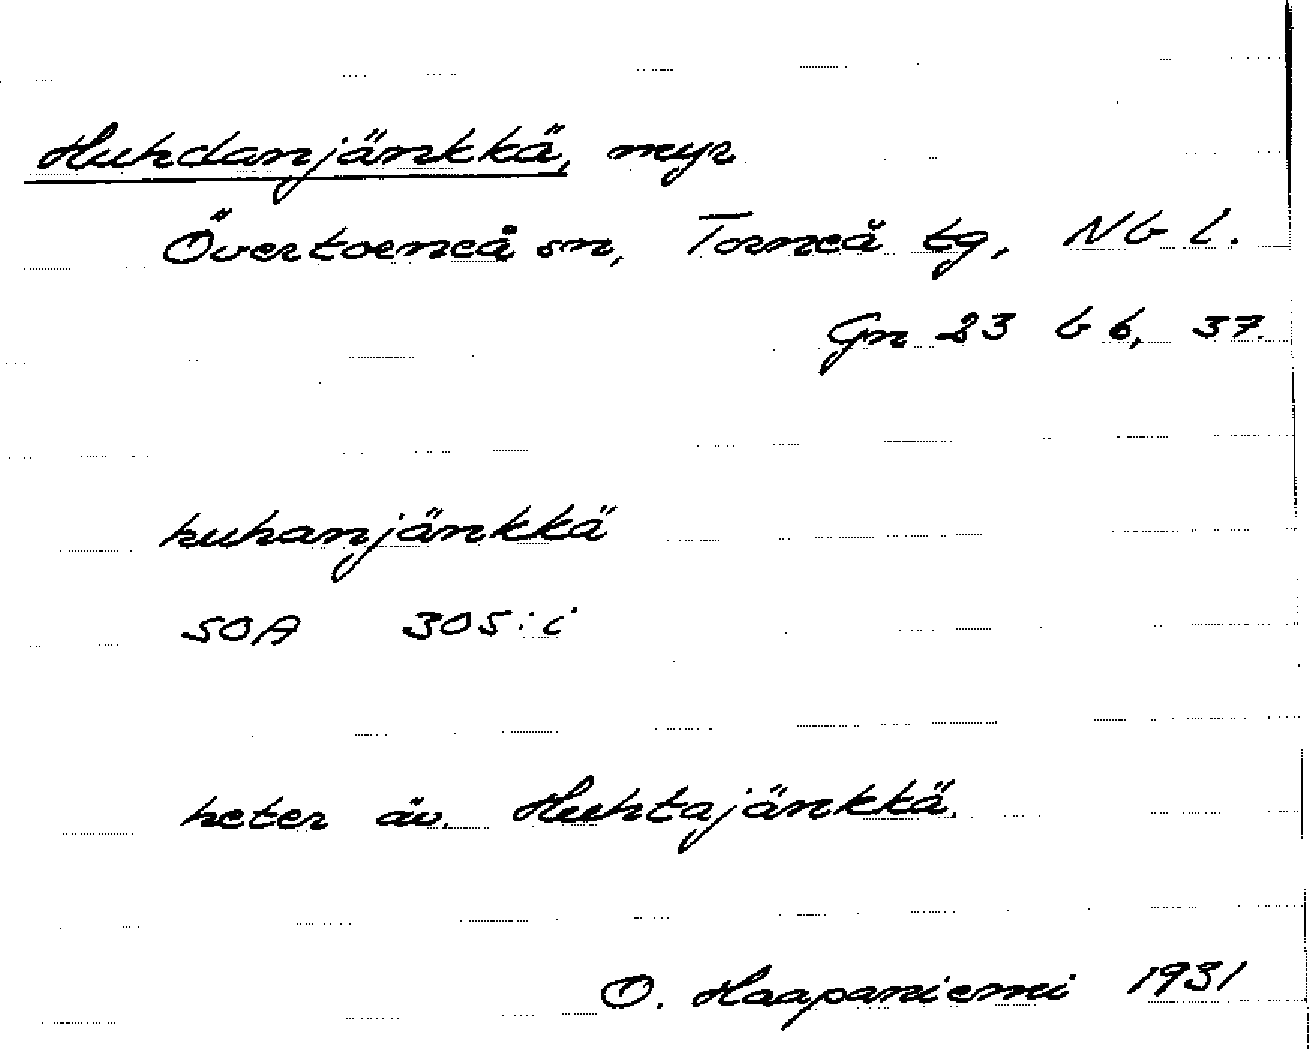 Huhdanjänkkä, myr
Övertorneå sn, Torneå tg, Nb l.
Gn 23 b 6, 37.
huhanjänkkä
SOA 305:i
heter äv. Huhtajänkkä.
O. Haapaniemi 1931